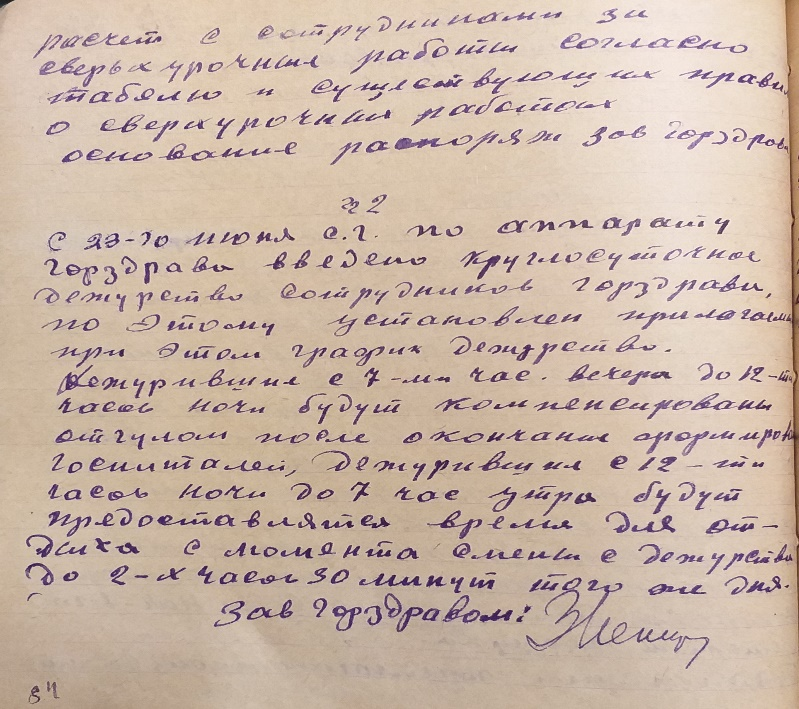 расчет с сотрудниками за
сверхурочные работы согласно
табелю и существующих прави
о сверхурочных работах
основание распоряж зав Горздрав
§ 2
С 23-го июня с.г. по аппарату
Горздрава введено круглосуточное
дежурство сотрудников Горздрава,
по этому установлен прилагаемы
при этом график дежурство.
Дежурившие с 7-ми час. вечера до 12-ти
часов ночи будут компенсированы
отгулом после окончания формиров
госпиталей, дежурившие с 12-ти
часов ночи до 7 час утра будут
предоставлятся время для от-
дыха с момента смены с дежурства
до 2-х часов 30 минут того же дня.
Зав Горздравом: